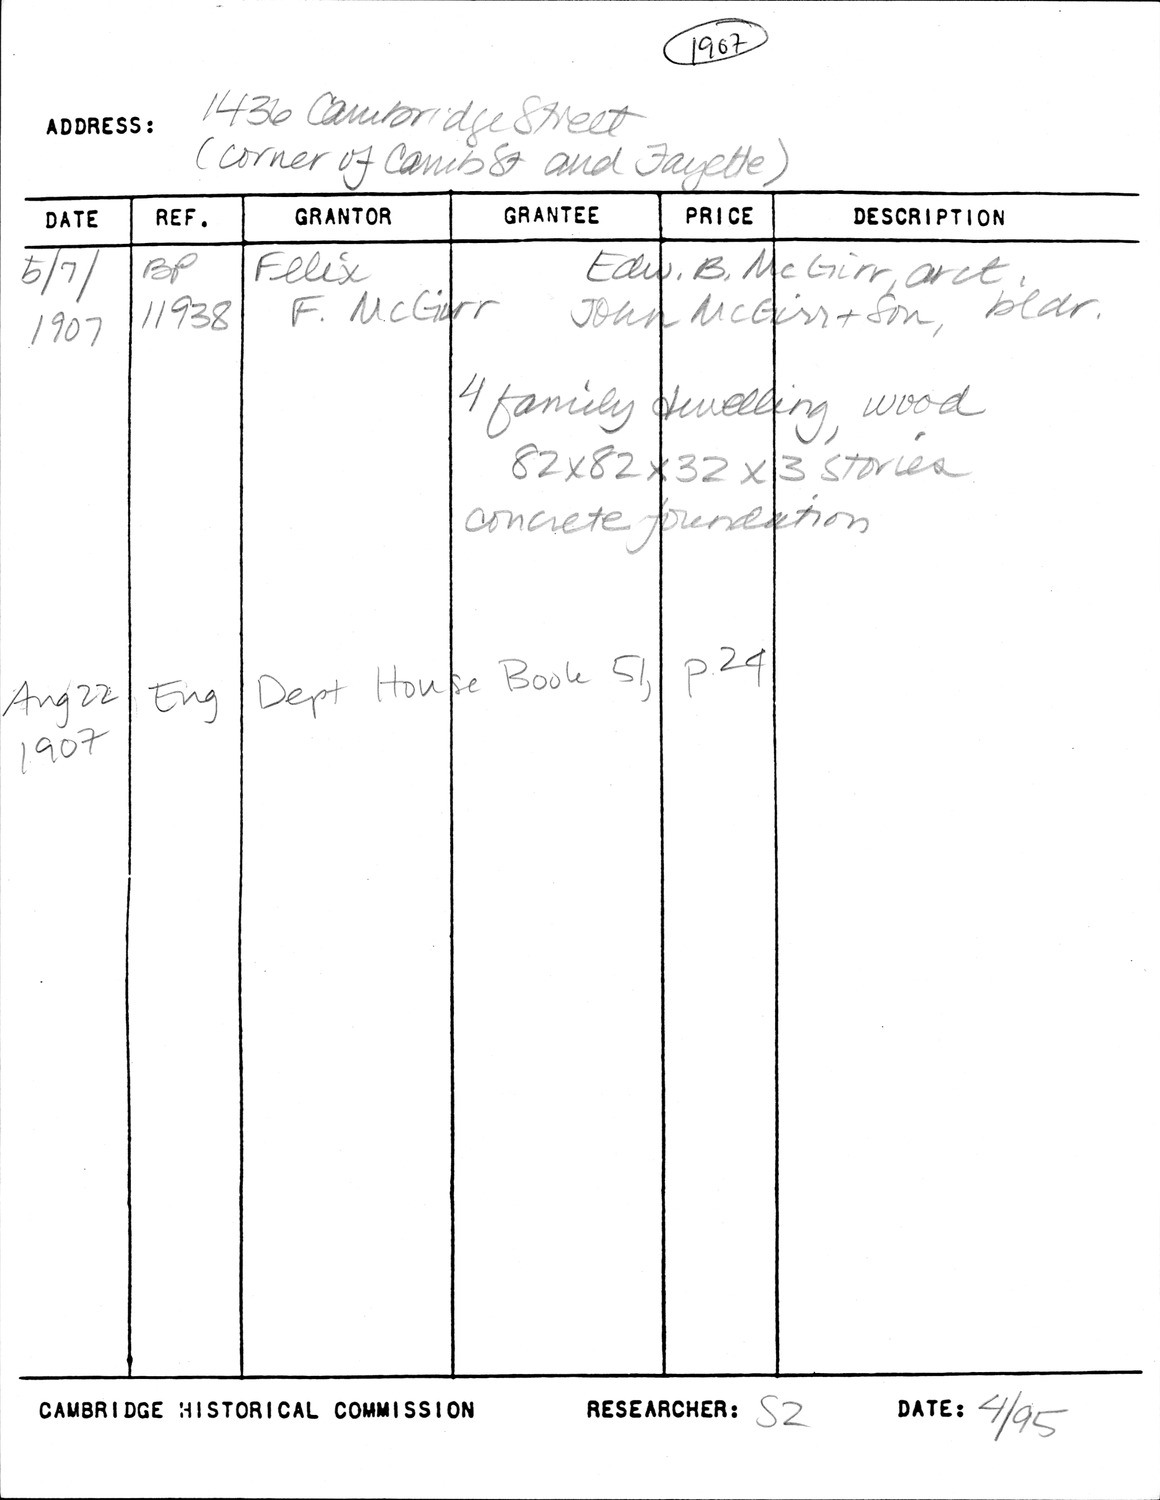 1907
ADDRESS: 1436 Cambridge Street
(corner of Camb St and Fayette)
DATE REF. GRANTOR GRANTEE PRICE DESCRIPTION
5/7/ BP Felix Edw. B. McGirr, arct.
1907 11938 F. McGirr John McGirr + Son, bldr.
4 family dwelling, wood
82x82x32 x 3 stories
concrete foundation
Aug 22 Eng Dept House Book 51, p.24
1907
CAMBRIDGE HISTORICAL COMMISSION RESEARCHER: SZ DATE: 4/95